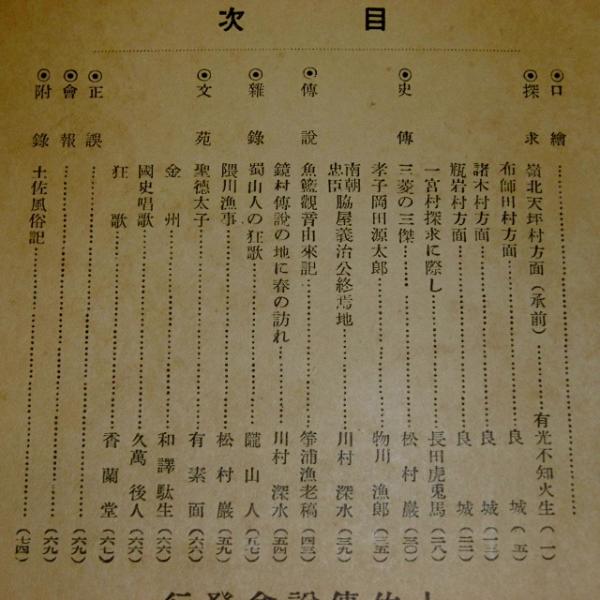 目次
◉口繪
◉探求 嶺北天坪村方面（承前） 有光不知火生（一）
布師田村方面 良城（五）
諸木村方面 良城（一三）
瓶岩村方面 良城（二二）
一宮村探求に際し 長田虎兎馬（二八）
◉史傳 三菱の三傑 松村巖（三〇）
孝子岡田源太郎 物川漁郎（三五）
南朝忠臣脇屋義治公終焉地 川村深水（三九）
◉傳說 魚籃觀音由來記 筝浦漁老稿（四三）
鏡村傳說の地に春の訪れ 川村深水（五四）
◉雜錄 蜀山人の狂歌 隴山人（五七）
隈川漁事 松村巖（五九）
◉文苑 聖德太子 有素面（六六）
金州 和譯駄生（六六）
國史唱歌 久萬後人（六六）
狂歌 香蘭堂（六七）
◉正誤（六九）
◉會報（六九）
◉附錄 土佐風俗記（七四）
土佐傳說會發行